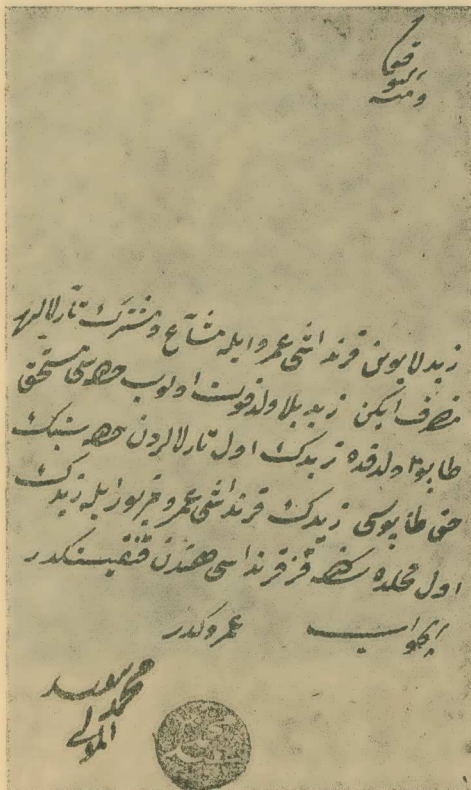 زيد لابوين قرنداشى عمرو ايله مشاع و مشترك تارلالره
متصرف ايكن زيد بلا ولد فوت اولوب حصه سى مستحق
طاپو اولدقده زيدك اول تارلالردن حصه سنك
حق طاپوسى زيدك قرنداشى عمرو ايله زيدك
اول محلده ساكنه قز قرنداشى هندن قنقيسنكدر
الجواب عمروكدر
محمد سعيد